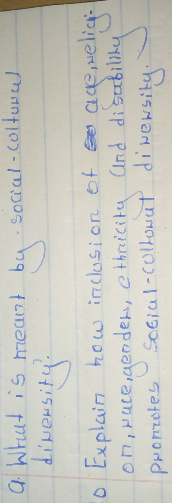 a. What is meant by social-coltural
diversity?
b Explain how inclusion of age, religi-
on, race, gender, ethnicity and disability
promotes social-coltural diversity.